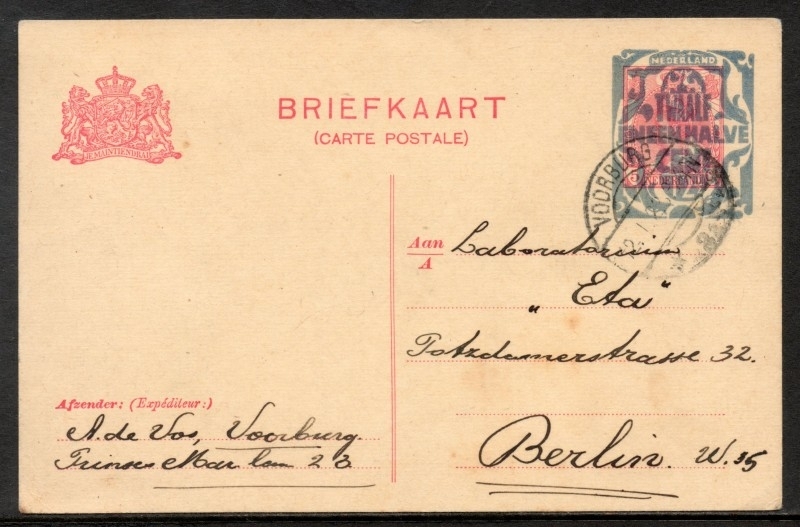 JE MAINTIENDRAI
BRIEFKAART
(CARTE POSTALE)
NEDERLAND
TWAALF
EN EEN HALVE
CENT
5
NEDERLAND
VOORBURG
Aan
A
Laboratorium
„Eta"
Potzdamerstrasse 32.
Berlin. W. 35
Afzender: (Expéditeur:)
A. de Vos, Voorburg.
Prinses Mar laan 23